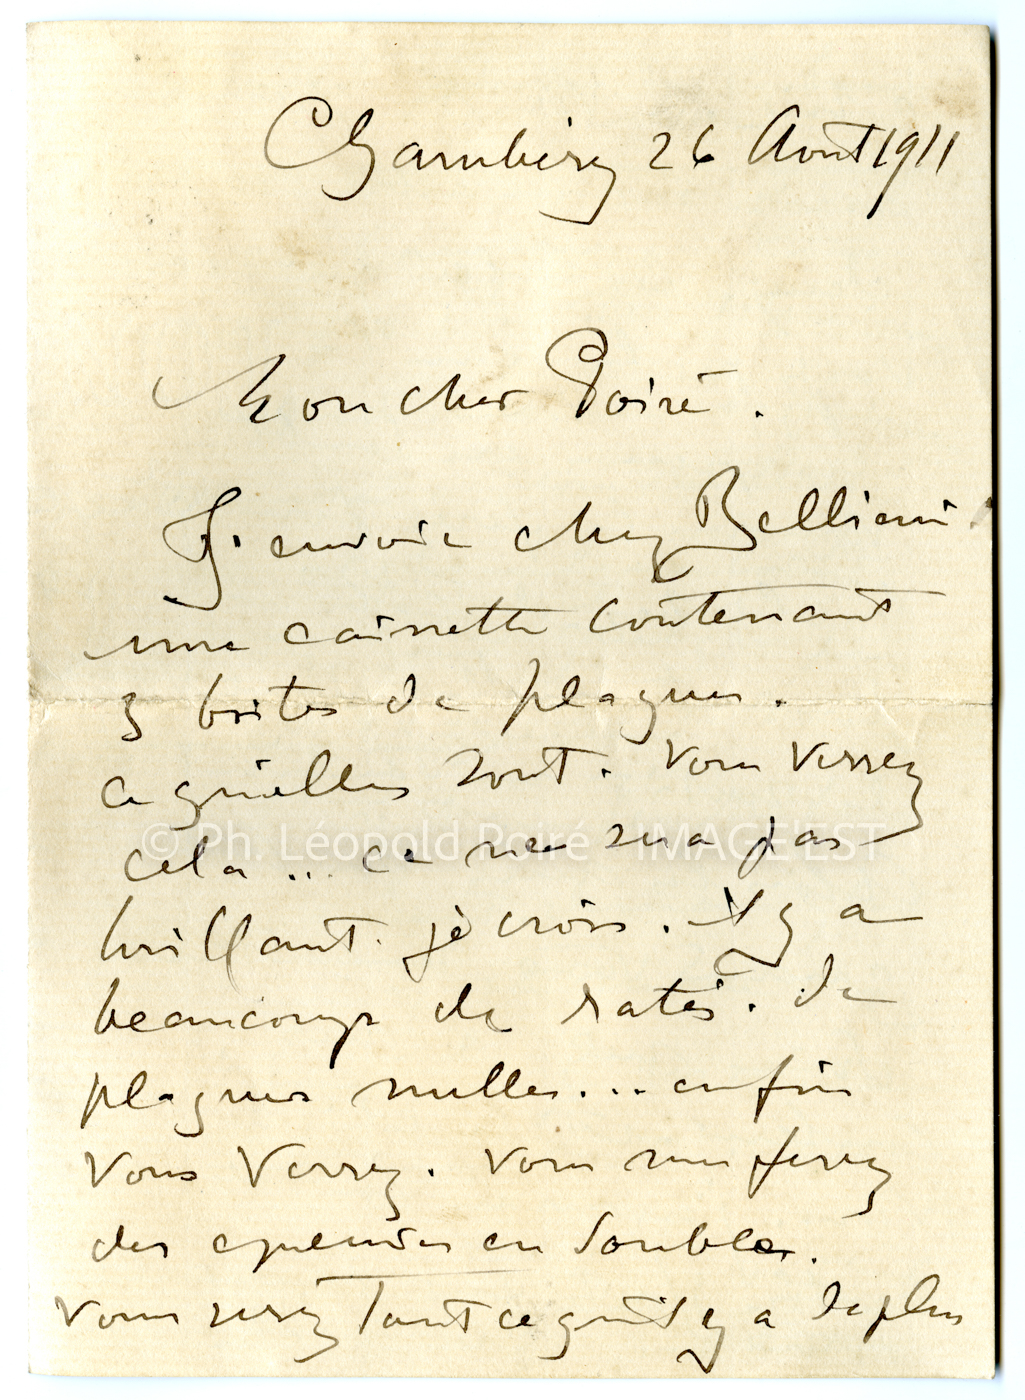 Chambéry 26 Août 1911
Mon cher Poiré.
J'envoie chez Bellieni
une caissette contenant
3 boites de plaques.
ce qu'elles sont. Vous verrez
cela... ce ne sera pas
brillant je crois. Il y a
beaucoup de ratés. de
plaques nulles... enfin
Vous Verrez. Vous me ferez
des épreuves en doubles.
Vous serez tout ce qu'il y a de plus
© Ph. Léopold Poiré - IMAGE'EST